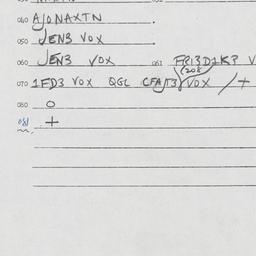 040 AJONAXTN
050 JEN3 VOX
060 JEN3 VOX 061 FRI3D1K? V
(208)
070 1FD3 VOX QGL CFAJT3 VOX / +
080 O
081 +